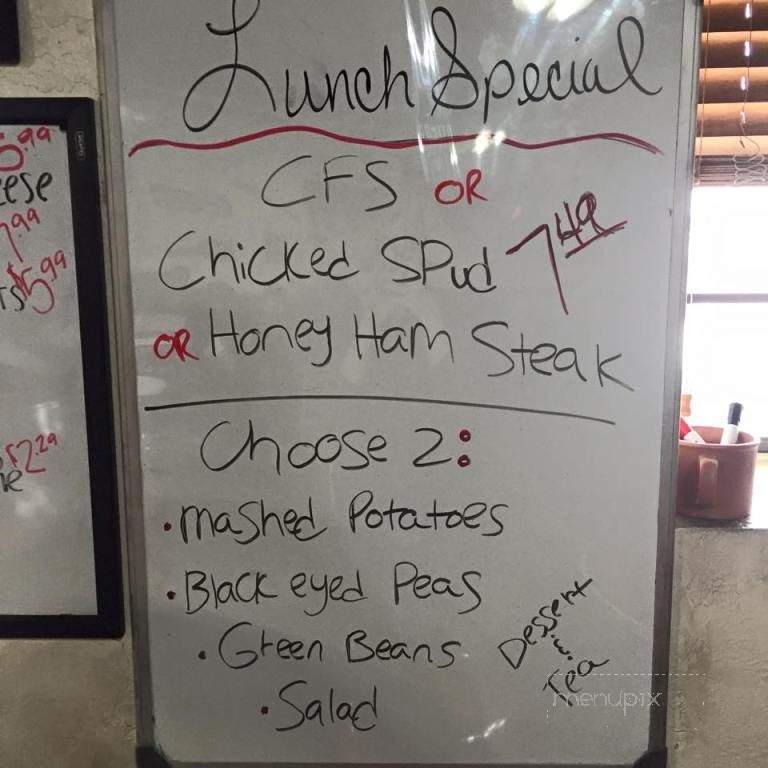 Lunch Special
CFS OR
Chicked Spud 7 49
OR Honey Ham Steak
Choose 2:
• mashed Potatoes
• Black eyed Peas
• Green Beans
• Salad
Dessert
&
Tea
5.99
eese
7.99
$5.99
2.29
menupix